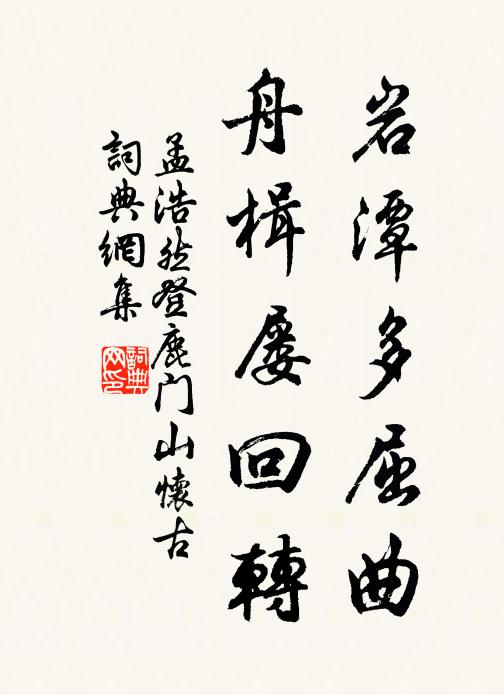 岩潭多屈曲
舟楫屡回轉
孟浩然登鹿门山懷古
詞典網集
詞典网印